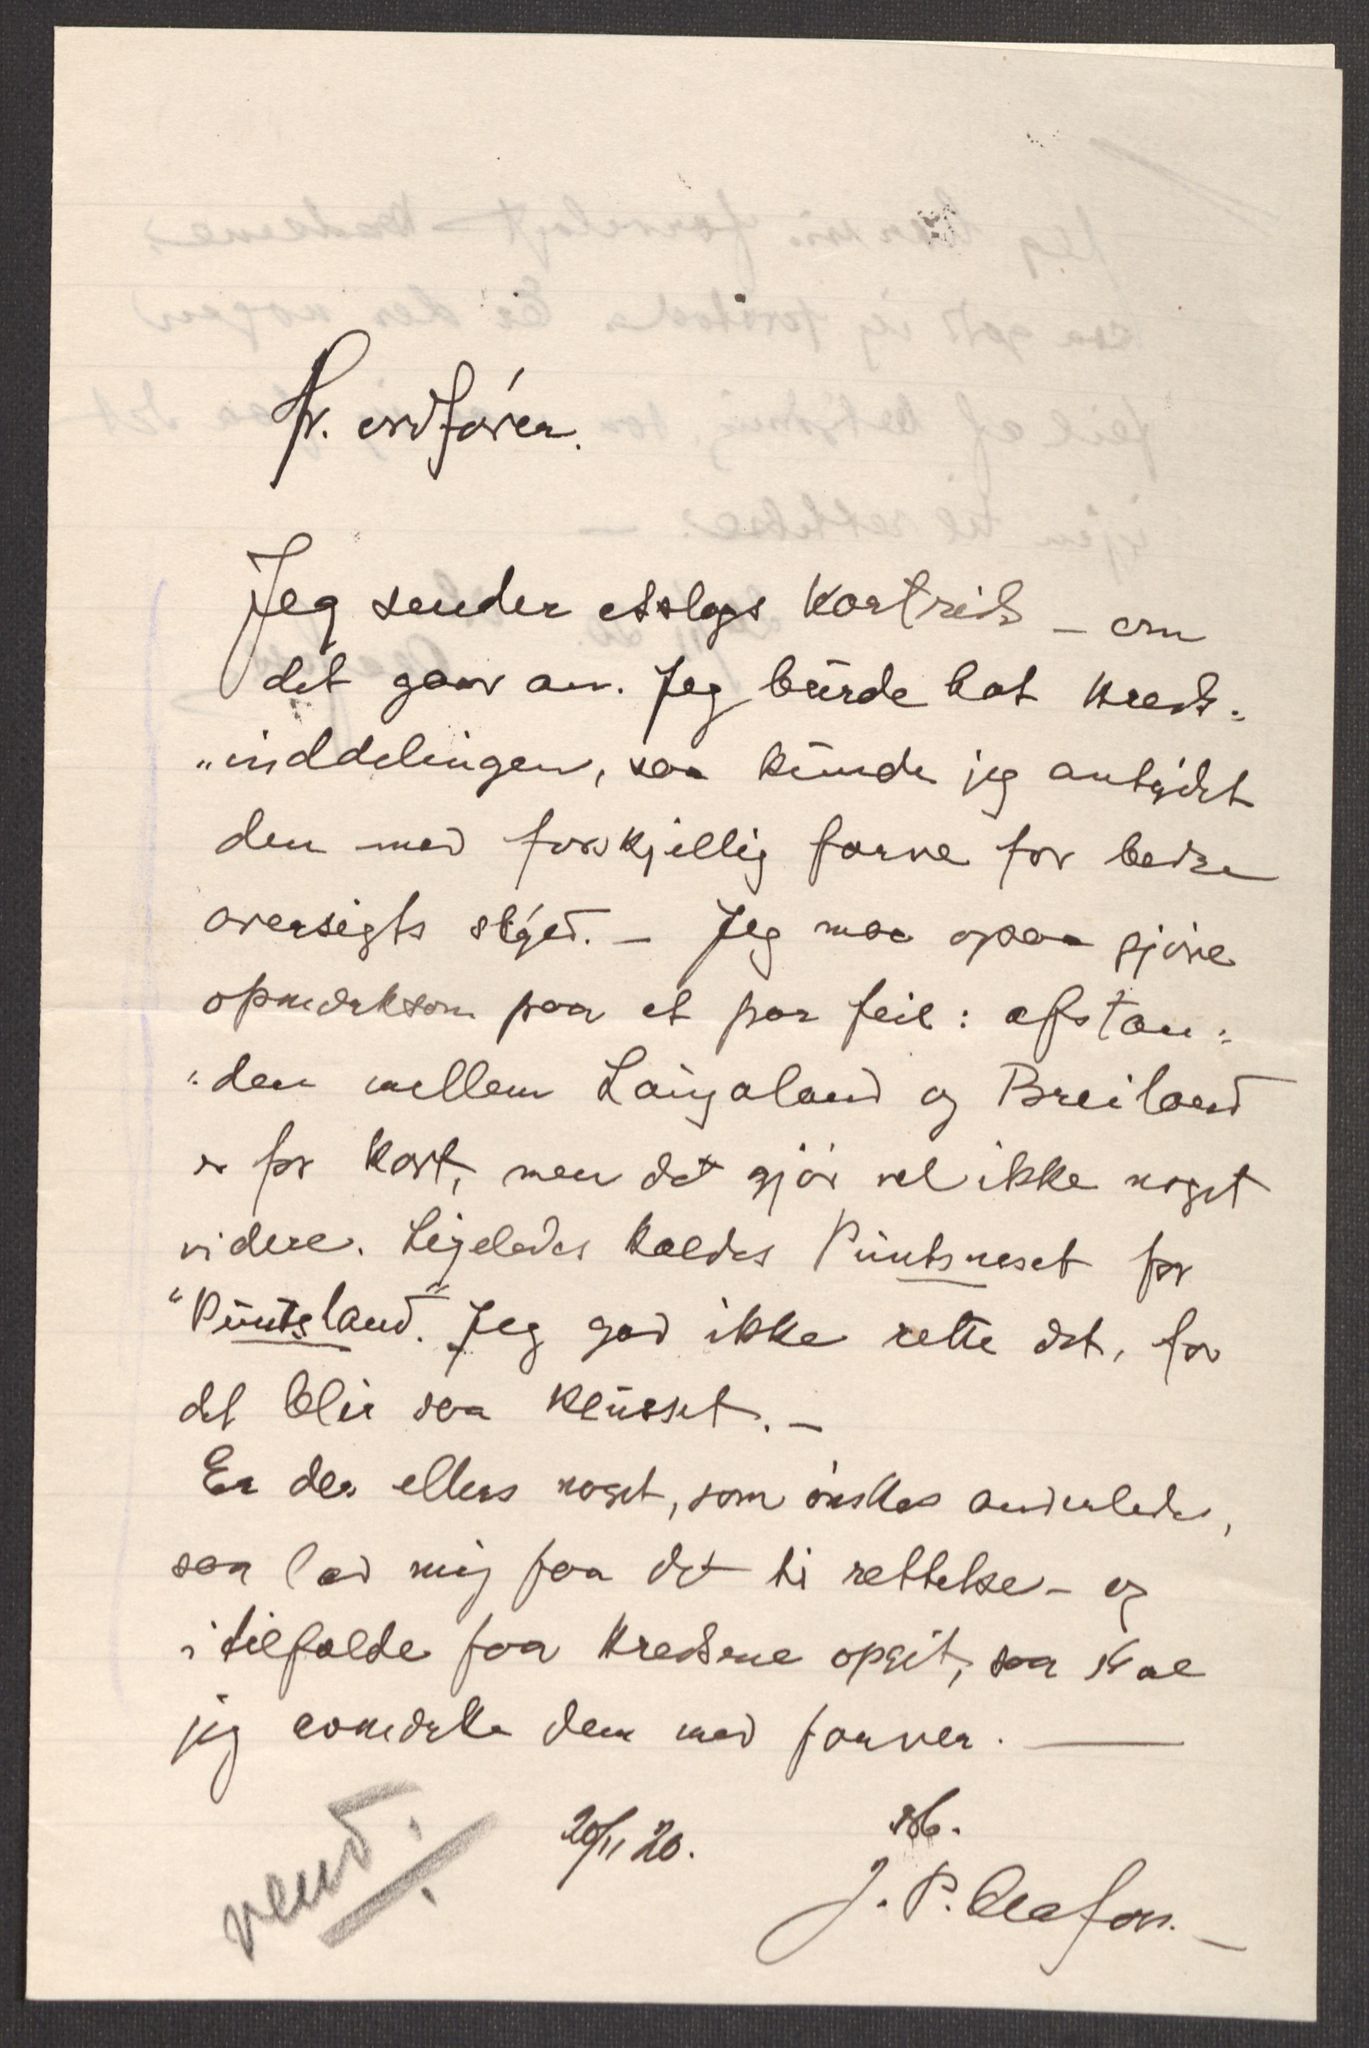 Hr. ordfører.
Jeg sender etslags kartrids – om
det gaar an. Jeg burde hat kreds-
"inddelingen, saa kunde jeg antydet
den med forskjellig farve for bedre
oversigts skyld. – Jeg maa ogsaa gjøre
opmerksom paa et par feil: afstan-
"den mellem Langaland og Breiland
er for kort, men det gjør vel ikke noget
videre. Ligeledes kaldes Puntsneset for
"Puntsland". Jeg gad ikke rette det, for
det blir saa klusset. –
Er der ellers noget, som ønskes anderledes,
saa lad mig faa det ti rettelse – og
i tilfælde faa kredsene opgit, saa skal
jeg avmerke dem med farver. —
20/11 20.
J. P. Olafsen. –
vend!